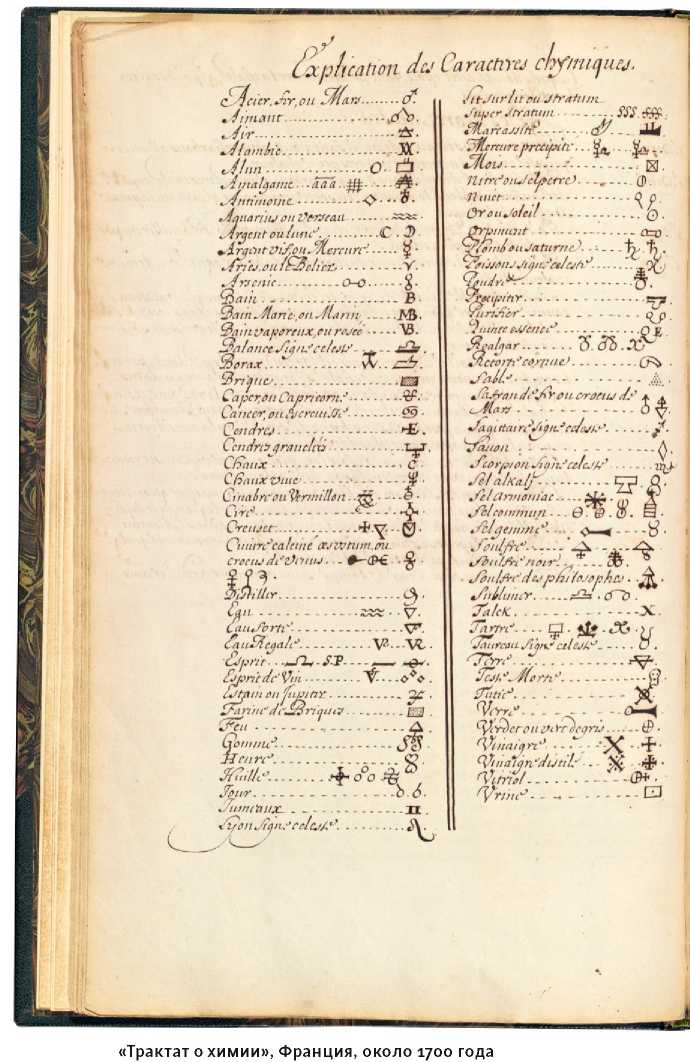 Explication des Caracteres chymiques.
Acier, fer, ou Mars
Aimant
Air
Alambic
Alun
Amalgame aaa
Antimoine
Aquarius ou verseau
Argent ou lune
Argent vif, ou Mercure
Aries, ou le Belier
Arsenic
Bain B
Bain Marie, ou Marin MB
Bain vaporeux, ou rosée VB
Balance signe celeste
Borax
Brique
Caper, ou Capricorne
Cancer, ou Escrevisse
Cendres E
Cendres gravelées
Chaux C
Chaux vive
Cinabre ou Vermillon
Cire
Creuset
Cuivre calciné æs ustum, ou
crocus de Venus
Distiller
Eau
Eau forte
Eau Regale
Esprit SP
Esprit de Vin
Estain ou Jupiter
Farine de Briques
Feu
Gomme
Heure
Huille
Jour
Jumeaux
Lyon signe celeste
Lit sur lit ou stratum
super stratum sss
Marcassite
Mercure precipité
Mois
Nitre ou selpetre
Nuict
Or ou soleil
Orpiment
Plomb ou saturne
Poissons signe celeste
Poudre
Precipiter
Purifier
Quinte essence
Realgar
Retorte cornue
Sable
Safran de fer, ou crocus de
Mars
Sagittaire signe celeste
Savon
Scorpion signe celeste
Sel alkali
Sel armoniac
Sel commun
Sel gemme
Soulfre
Soulfre noir
Soulfre des philosophes
Sublimer
Talck X
Tartre
Taureau signe celeste
Terre
Teste Morte
Tutie
Verre
Verdet ou vert de gris
Vinaigre
Vinaigre distilé
Vitriol
Vrine
«Трактат о химии», Франция, около 1700 года